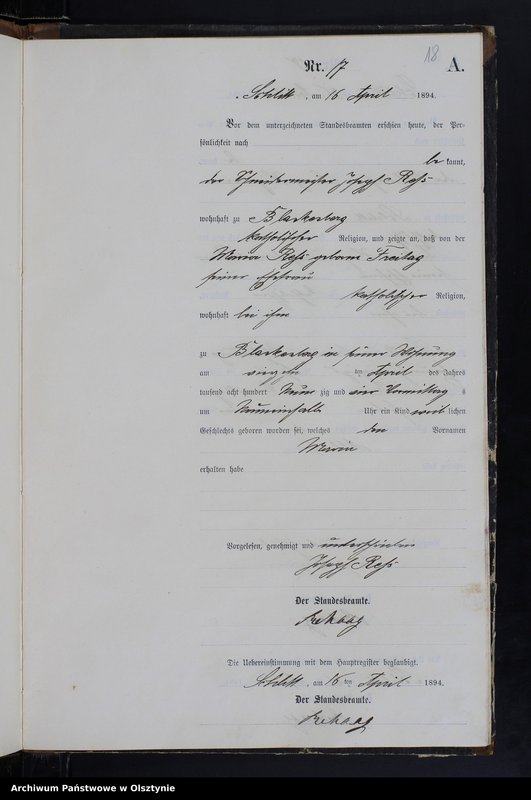 18
Nr. 17
A.
Schlitt, am 16 April 1894.
Vor dem unterzeichneten Standesbeamten erschien heute, der Per-
sönlichkeit nach
be kannt,
der Schneidermeister Joseph
wohnhaft zu Blankenberg
katholischer Religion, und zeigte an, daß von der
Maria geborene Freitag
seiner Ehefrau
katholischer Religion,
wohnhaft bei ihm
zu Blankenberg in seiner Wohnung
am ten April des Jahres
tausend acht hundert neun zig und vier Vormittag s
um neuneinhalb Uhr ein Kind weib lichen
Geschlechts geboren worden sei, welches den Vornamen
Maria
erhalten habe
Vorgelesen, genehmigt und unterschrieben
Joseph
Der Standesbeamte.
Die Uebereinstimmung mit dem Hauptregister beglaubigt.
Schlitt, am 16 ten April 1894.
Der Standesbeamte.
Archiwum Państwowe w Olsztynie